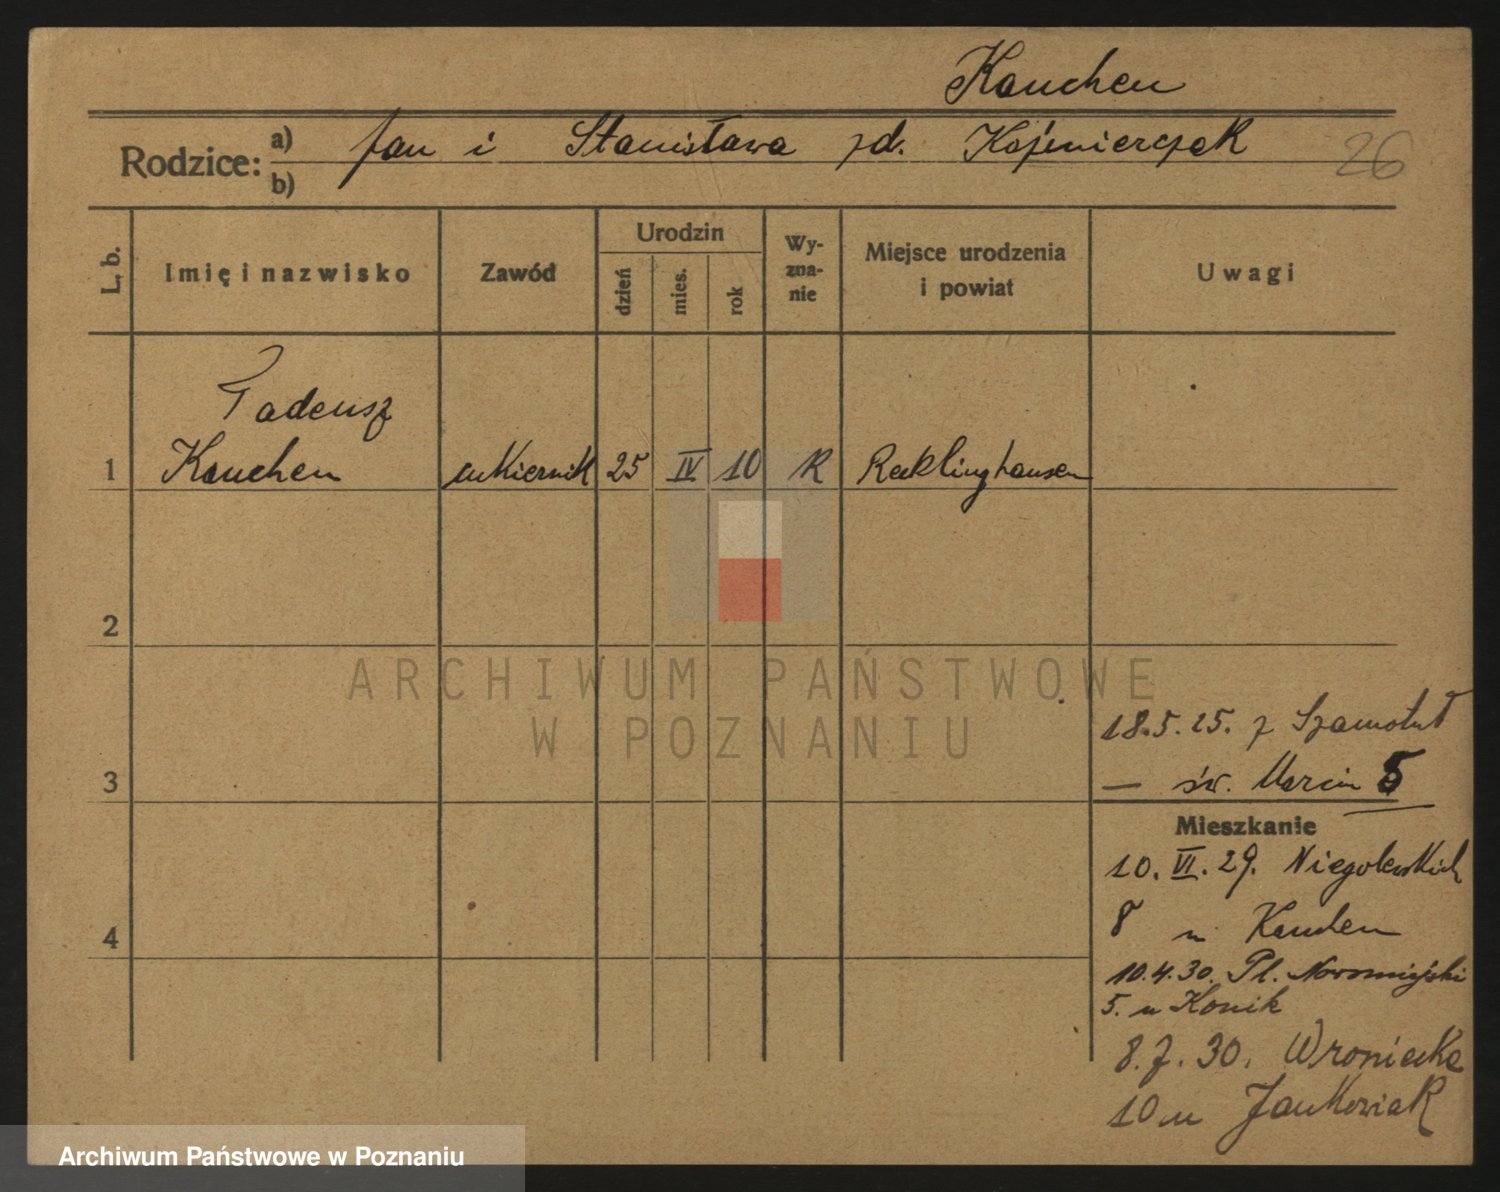 Kauchen
Rodzice: a) Jan i Stanisława zd. Kaźmierczak
b)
26
L. b.
Imię i nazwisko
Zawód
Urodzin
dzień
mies.
rok
Wy-
zna-
nie
Miejsce urodzenia
i powiat
Uwagi
Tadeusz
1 Kauchen cukiernik 25 IV 10 R Recklinghausen
2
ARCHIWUM PAŃSTWOWE
W POZNANIU
18.5.25. z Szamotuł
3
— św. Marcin 5
Mieszkanie
10. VI. 29. Niegolewskich
4
8 u Kauchen
10.4.30. Pl. Nowomiejski
5. u Konik
8.7.30. Wroniecka
10 u Jankowiak
Archiwum Państwowe w Poznaniu